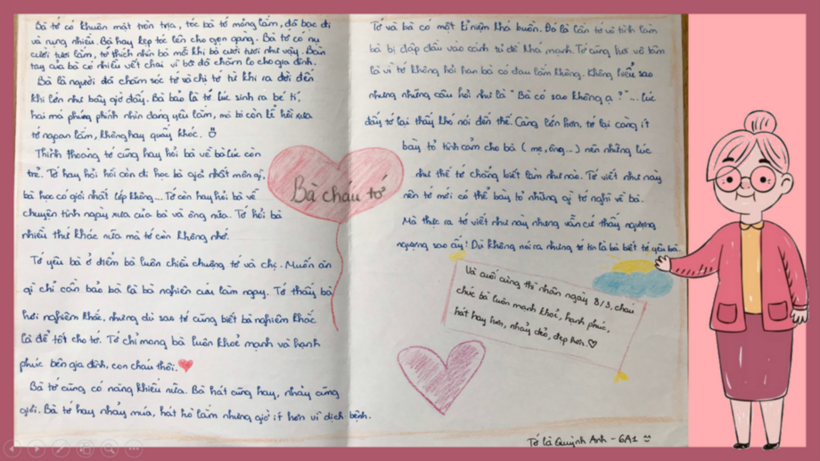 Bà tớ có khuôn mặt tròn trịa, tóc bà tớ mỏng lắm, đã bạc đi
và rụng nhiều. Bà hay kẹp tóc lên cho gọn gàng. Bà tớ có nụ
cười tươi lắm, tớ thích nhìn bà mỗi khi bà cười tươi như vậy. Bàn
tay của bà có nhiều vết chai vì bà đã chăm lo cho gia đình.
Bà là người đã chăm sóc tớ và chị tớ từ khi ra đời đến
khi lớn như bây giờ đấy. Bà bảo là tớ lúc sinh ra bé tí,
hai má phúng phính nhìn đáng yêu lắm, mà bà còn kể hồi xưa
tớ ngoan lắm, không hay quấy khóc.
Thỉnh thoảng tớ cũng hay hỏi bà về bà lúc còn
trẻ. Tớ hay hỏi hồi còn đi học bà giỏi nhất môn gì,
bà học có giỏi nhất lớp không... Tớ còn hay hỏi bà về
chuyện tình ngày xưa của bà và ông nữa. Tớ hỏi bà
nhiều thứ khác nữa mà tớ còn không nhớ.
Tớ yêu bà ở điểm bà luôn chiều chuộng tớ và chị. Muốn ăn
gì chỉ cần bảo bà là bà nghiên cứu làm ngay. Tớ thấy bà
hơi nghiêm khắc, nhưng dù sao tớ cũng biết bà nghiêm khắc
là để tốt cho tớ. Tớ chỉ mong bà luôn khoẻ mạnh và hạnh
phúc bên gia đình, con cháu thôi.
Bà tớ cũng có năng khiếu nữa. Bà hát cũng hay, nhảy cũng
giỏi. Bà tớ hay nhảy múa, hát hò lắm nhưng giờ ít hơn vì dịch bệnh.
Bà cháu tớ
Tớ và bà có một kỉ niệm khá buồn. Đó là lần tớ vô tình làm
bà bị đập đầu vào cách tủ để khá mạnh. Tớ cũng hơi vô tâm
là vì tớ không hỏi han bà có đau lắm không. Không hiểu sao
nhưng những câu hỏi như là "Bà có sao không ạ?"... lúc
đấy tớ lại thấy khó nói đến thế. Càng lớn hơn, tớ lại càng ít
bày tỏ tình cảm cho bà (mẹ, ông...) nên những lúc
như thế tớ chẳng biết làm như nào. Tớ viết như này
nên tớ mới có thể bày tỏ những gì tớ nghĩ về bà.
Mà thực ra tớ viết như này nhưng vẫn cứ thấy ngượng
ngượng sao ấy! Dù không nói ra nhưng tớ tin là bà biết tớ yêu bà.
Và cuối cùng thì nhân ngày 8/3, cháu
chúc bà luôn mạnh khoẻ, hạnh phúc,
hát hay hơn, nhảy dẻo, đẹp hơn
Tớ là Quỳnh Anh - 6A1